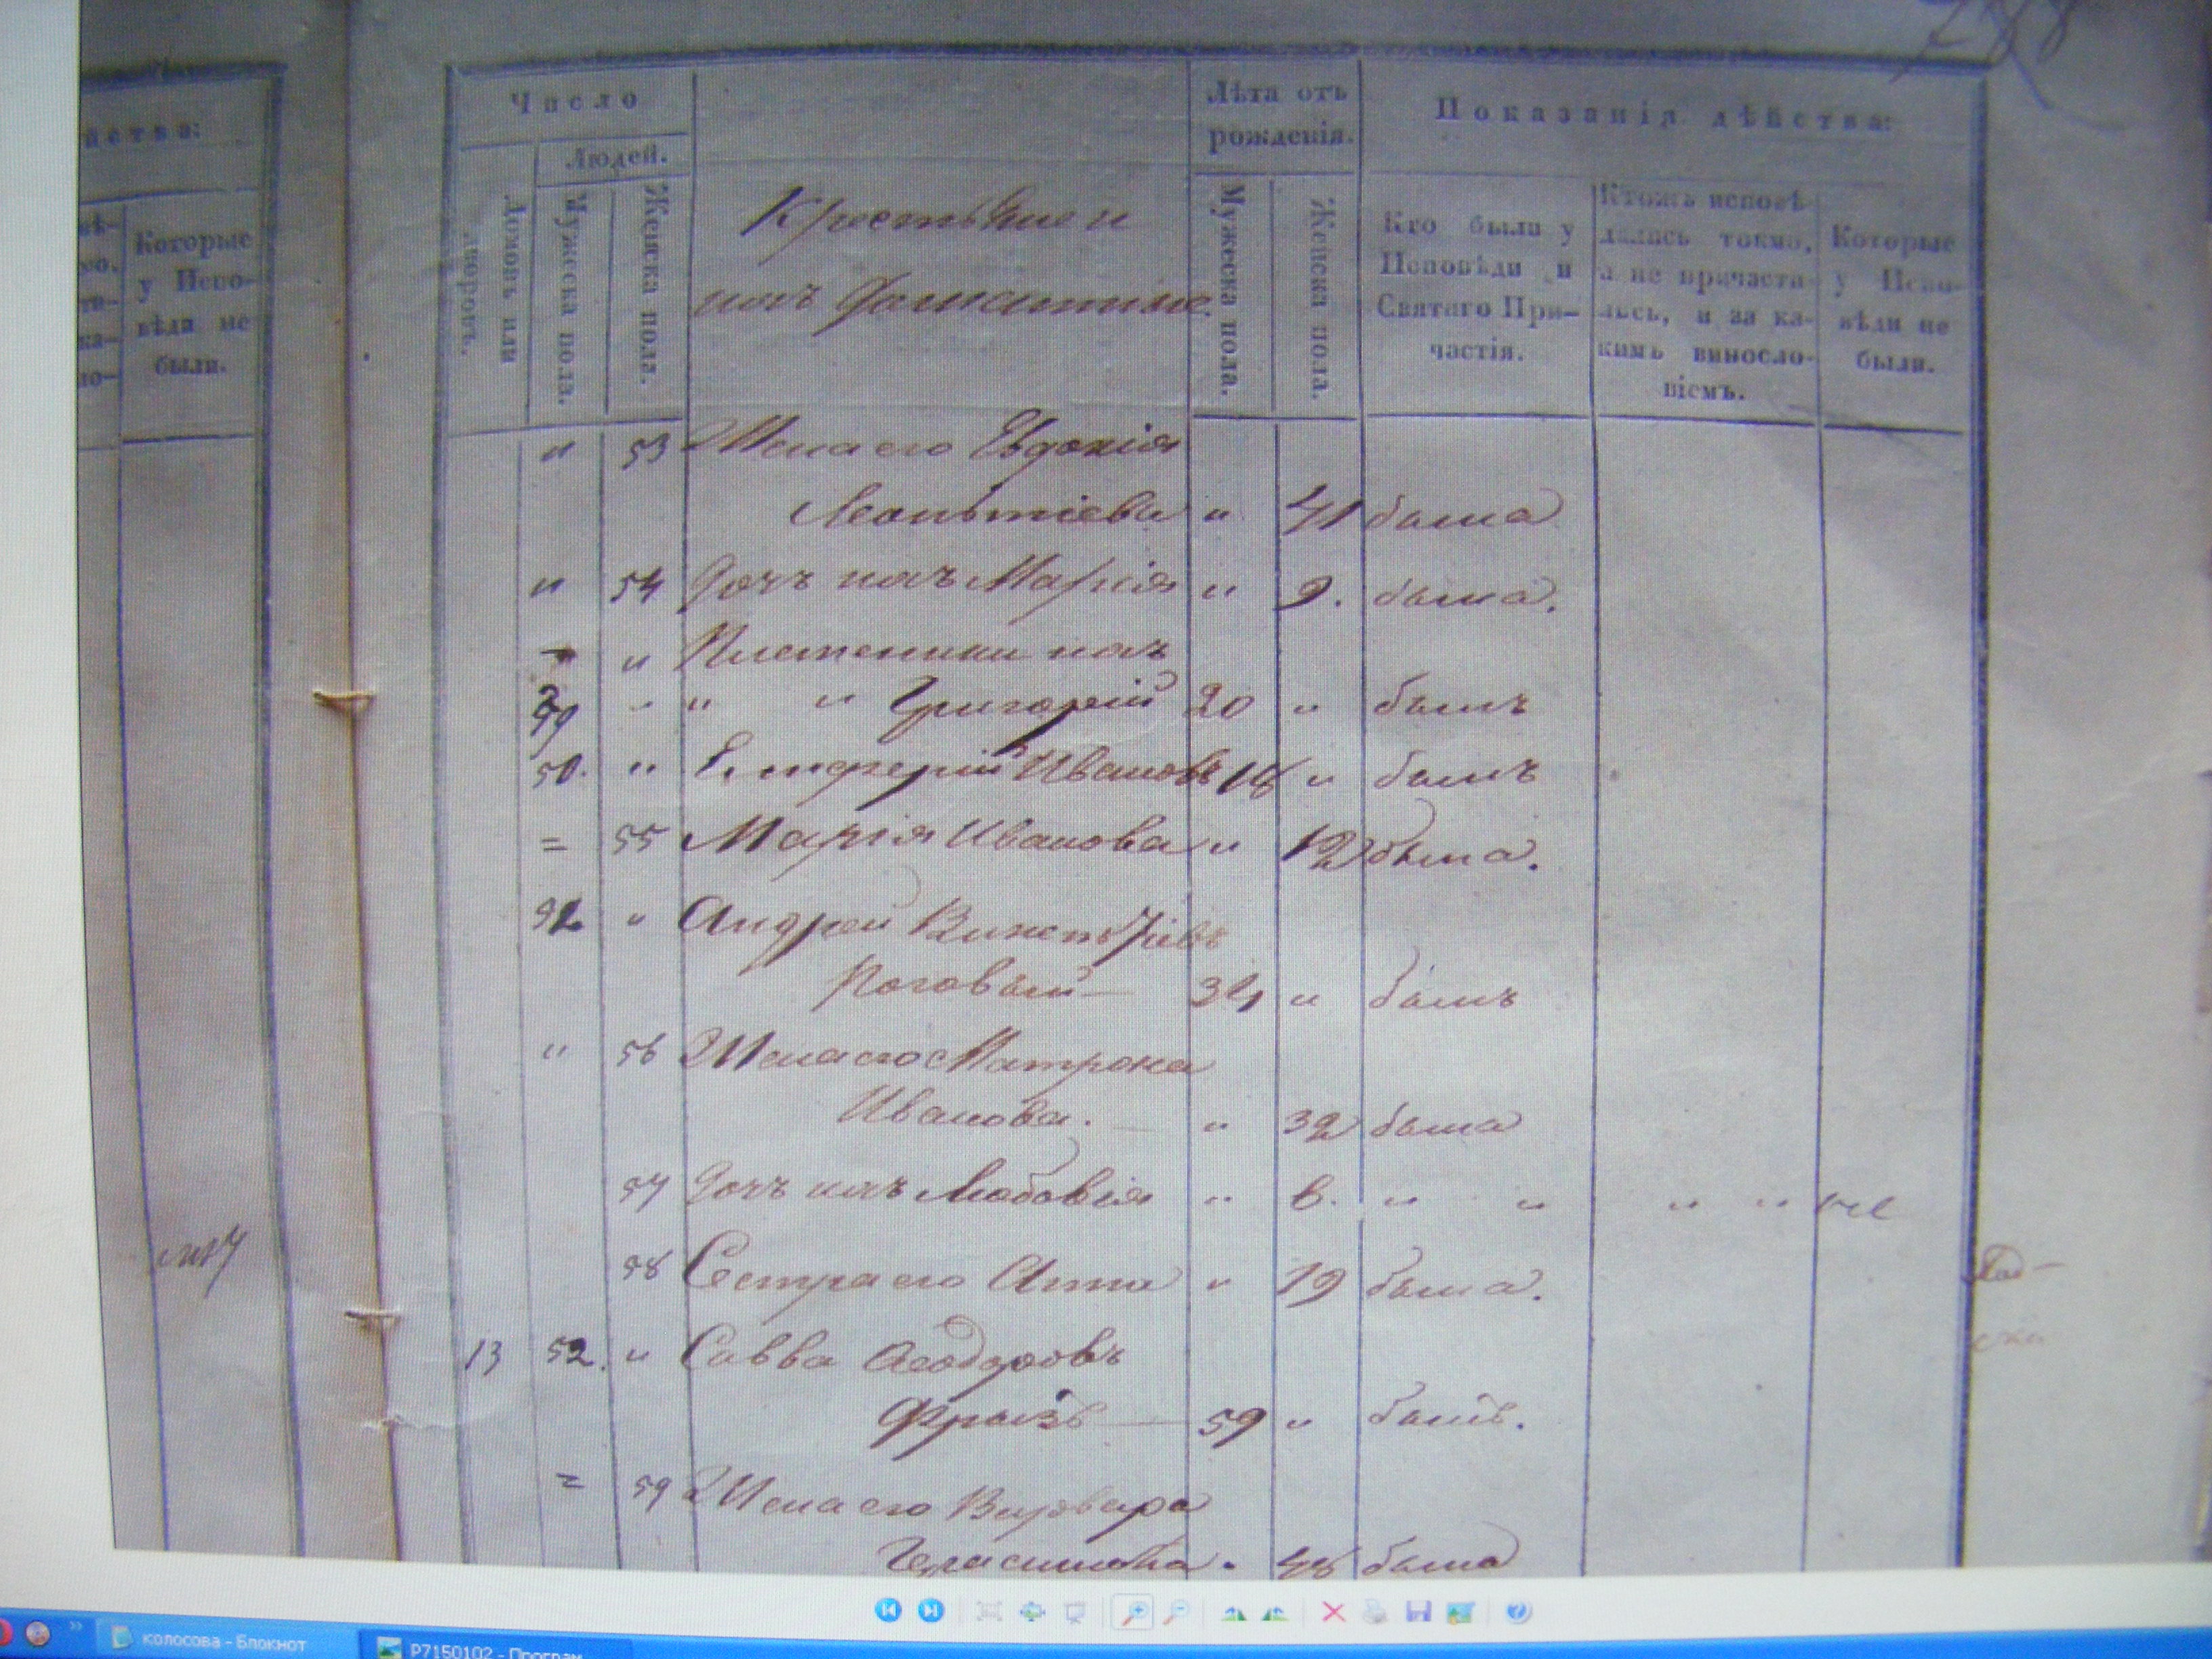 788
йства:
Которые
у Испо-
вѣди не
были.
Число
Людей.
Домовъ или
дворовъ.
Мужеска пола.
Женска пола.
Крестьяне и
ихъ Домашніе
Лѣта отъ
рожденія.
Мужеска пола.
Женска пола.
Показанія дѣйства:
Кто были у
Исповѣди и
Святаго При-
частія.
Ктожъ исповѣ-
дались токмо,
а не причаста-
лись, и за ка-
кимъ винособо-
ніемъ.
Которые
у Испо-
вѣди не
были.
" 53 Жена его Евдокія
Леонтіева " 41 была
" 54 Дочь ихъ Марія " 9. была.
" Племенники ихъ
49 " " " Григорій 20 " былъ
50. " Елиферій Ивановъ 18 " былъ
= 55 Марія Иванова " 12 была.
51 " Андрей
Роговый — 34 " былъ
" 56 Жена его Матрона
Иванова. " 32 была
57 Дочь ихъ Любовія " 6. " " " " не
58 Сестра его Анна " 19 была.
13 52. " Савва Ѳеодоровъ
Фрызъ — 59 " былъ.
= 59 Жена его Варвара
Герасимова " 48 была
колосова - Блокнот
P7150102 - Програм